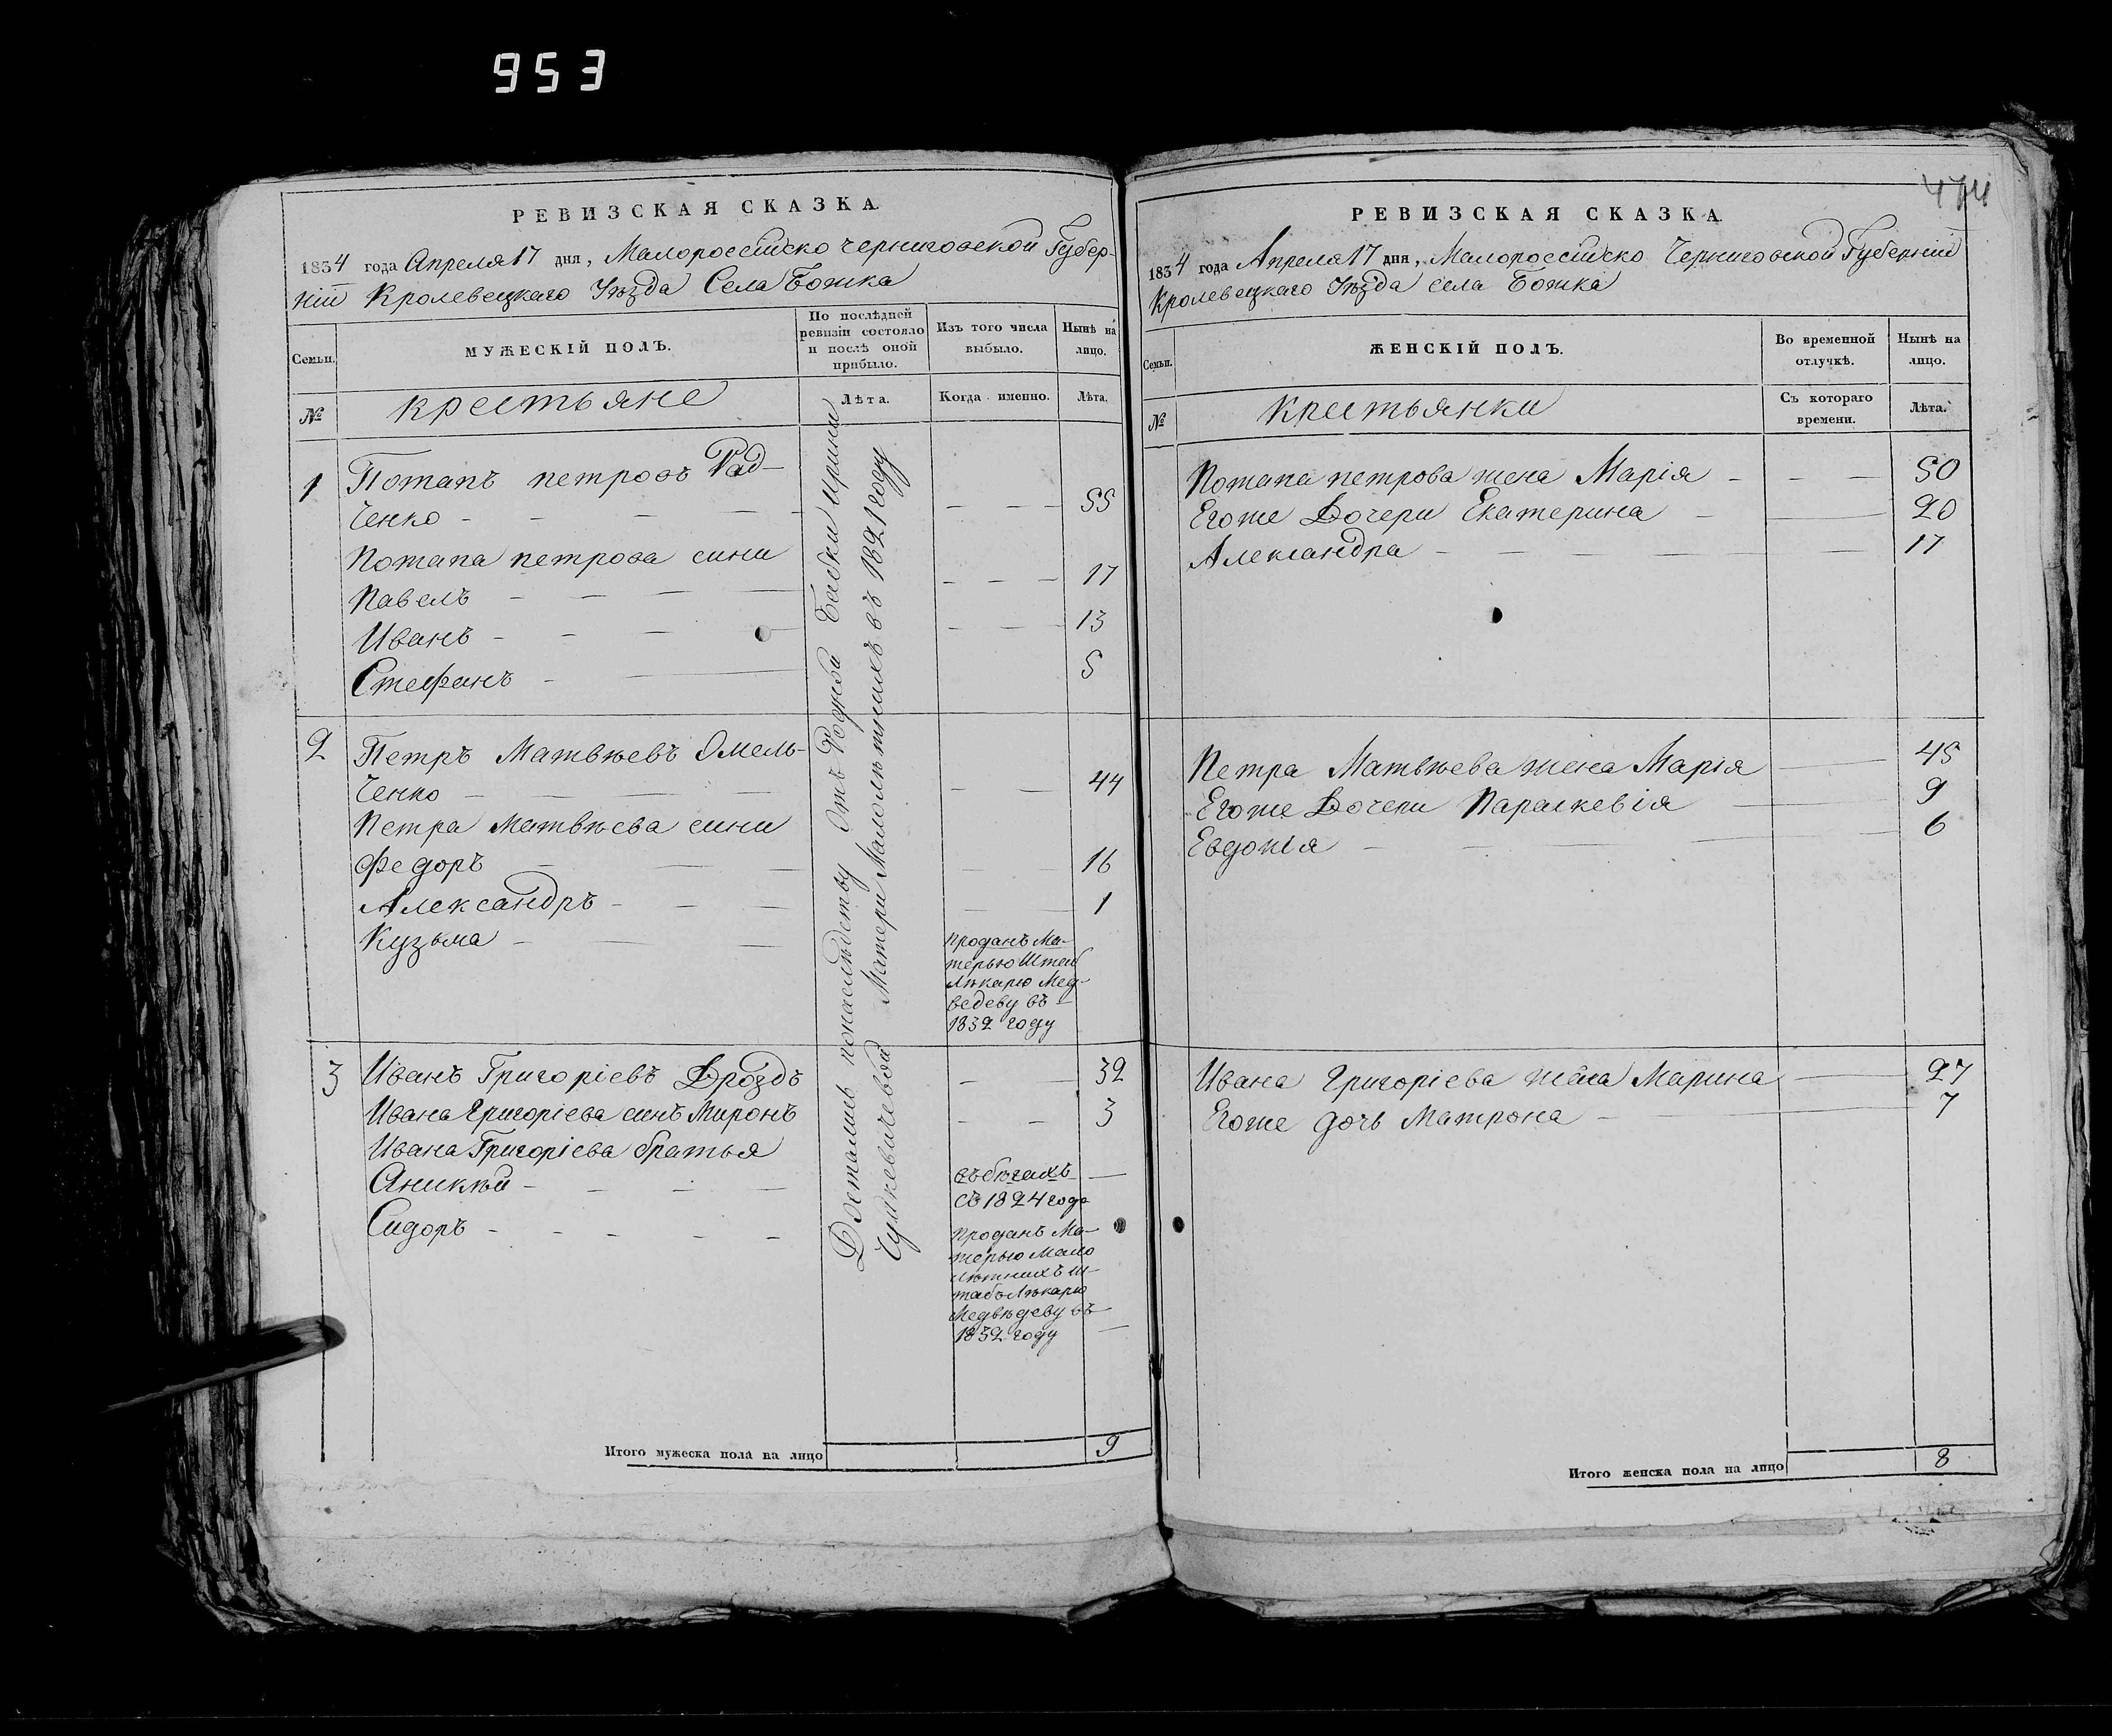 953
РЕВИЗСКАЯ СКАЗКА.
1834 года Апреля 17 дня, Малороссійско Черниговской Губер-
ніи Кролевецкаго Уѣзда Села Божка
Семьи.
МУЖЕСКІЙ ПОЛЪ.
По послѣдней
ревизіи состояло
и послѣ оной
прибыло.
Изъ того числа
выбыло.
Нынѣ на
лицо.
№
крестьяне
Лѣта.
Когда именно.
Лѣта.
1 Потапъ петровъ Рад-
ченко 55
Потапа петрова сини
Павелъ 17
Иванъ 13
Стефанъ 5
2 Петръ Матвѣевъ Омель-
ченко 44
Петра Матвѣева сини
Федоръ 16
Александръ 1
Кузьма
проданъ Ма-
терью Штаб
Лѣкарю Мед-
ведеву въ
1832 году
3 Иванъ Григоріевъ Дроздъ 32
Ивана Григоріева синъ Миронъ 3
Ивана Григоріева братья
Аникѣй
въ бѣгахъ
съ 1824 года
Сидоръ
проданъ Ма-
терью Мало
лѣтнихъ Ш-
табъ Лѣкарю
Медвѣдеву въ
1832 году
Достались понаслѣдству Отъ Родной Бабки Ирини
Матери Малолѣтнихъ въ 1821 году
Итого мужеска пола на лицо 9
474
РЕВИЗСКАЯ СКАЗКА.
1834 года Апреля 17 дня, Малороссійско Черниговской Губерніи
Кролевецкаго Уѣзда села Божка
Семьи.
ЖЕНСКІЙ ПОЛЪ.
Во временной
отлучкѣ.
Нынѣ на
лицо.
№
крестьянки
Съ котораго
времени.
Лѣта.
Потапа петрова жена Марія 50
Егоже Дочери Екатерина 20
Александра 17
Петра Матвѣева жена Марія 45
Егоже Дочери Параскевія 9
Евдокія 6
Ивана Григоріева жена Марина 27
Егоже дочь Матрона 7
Итого женска пола на лицо 8